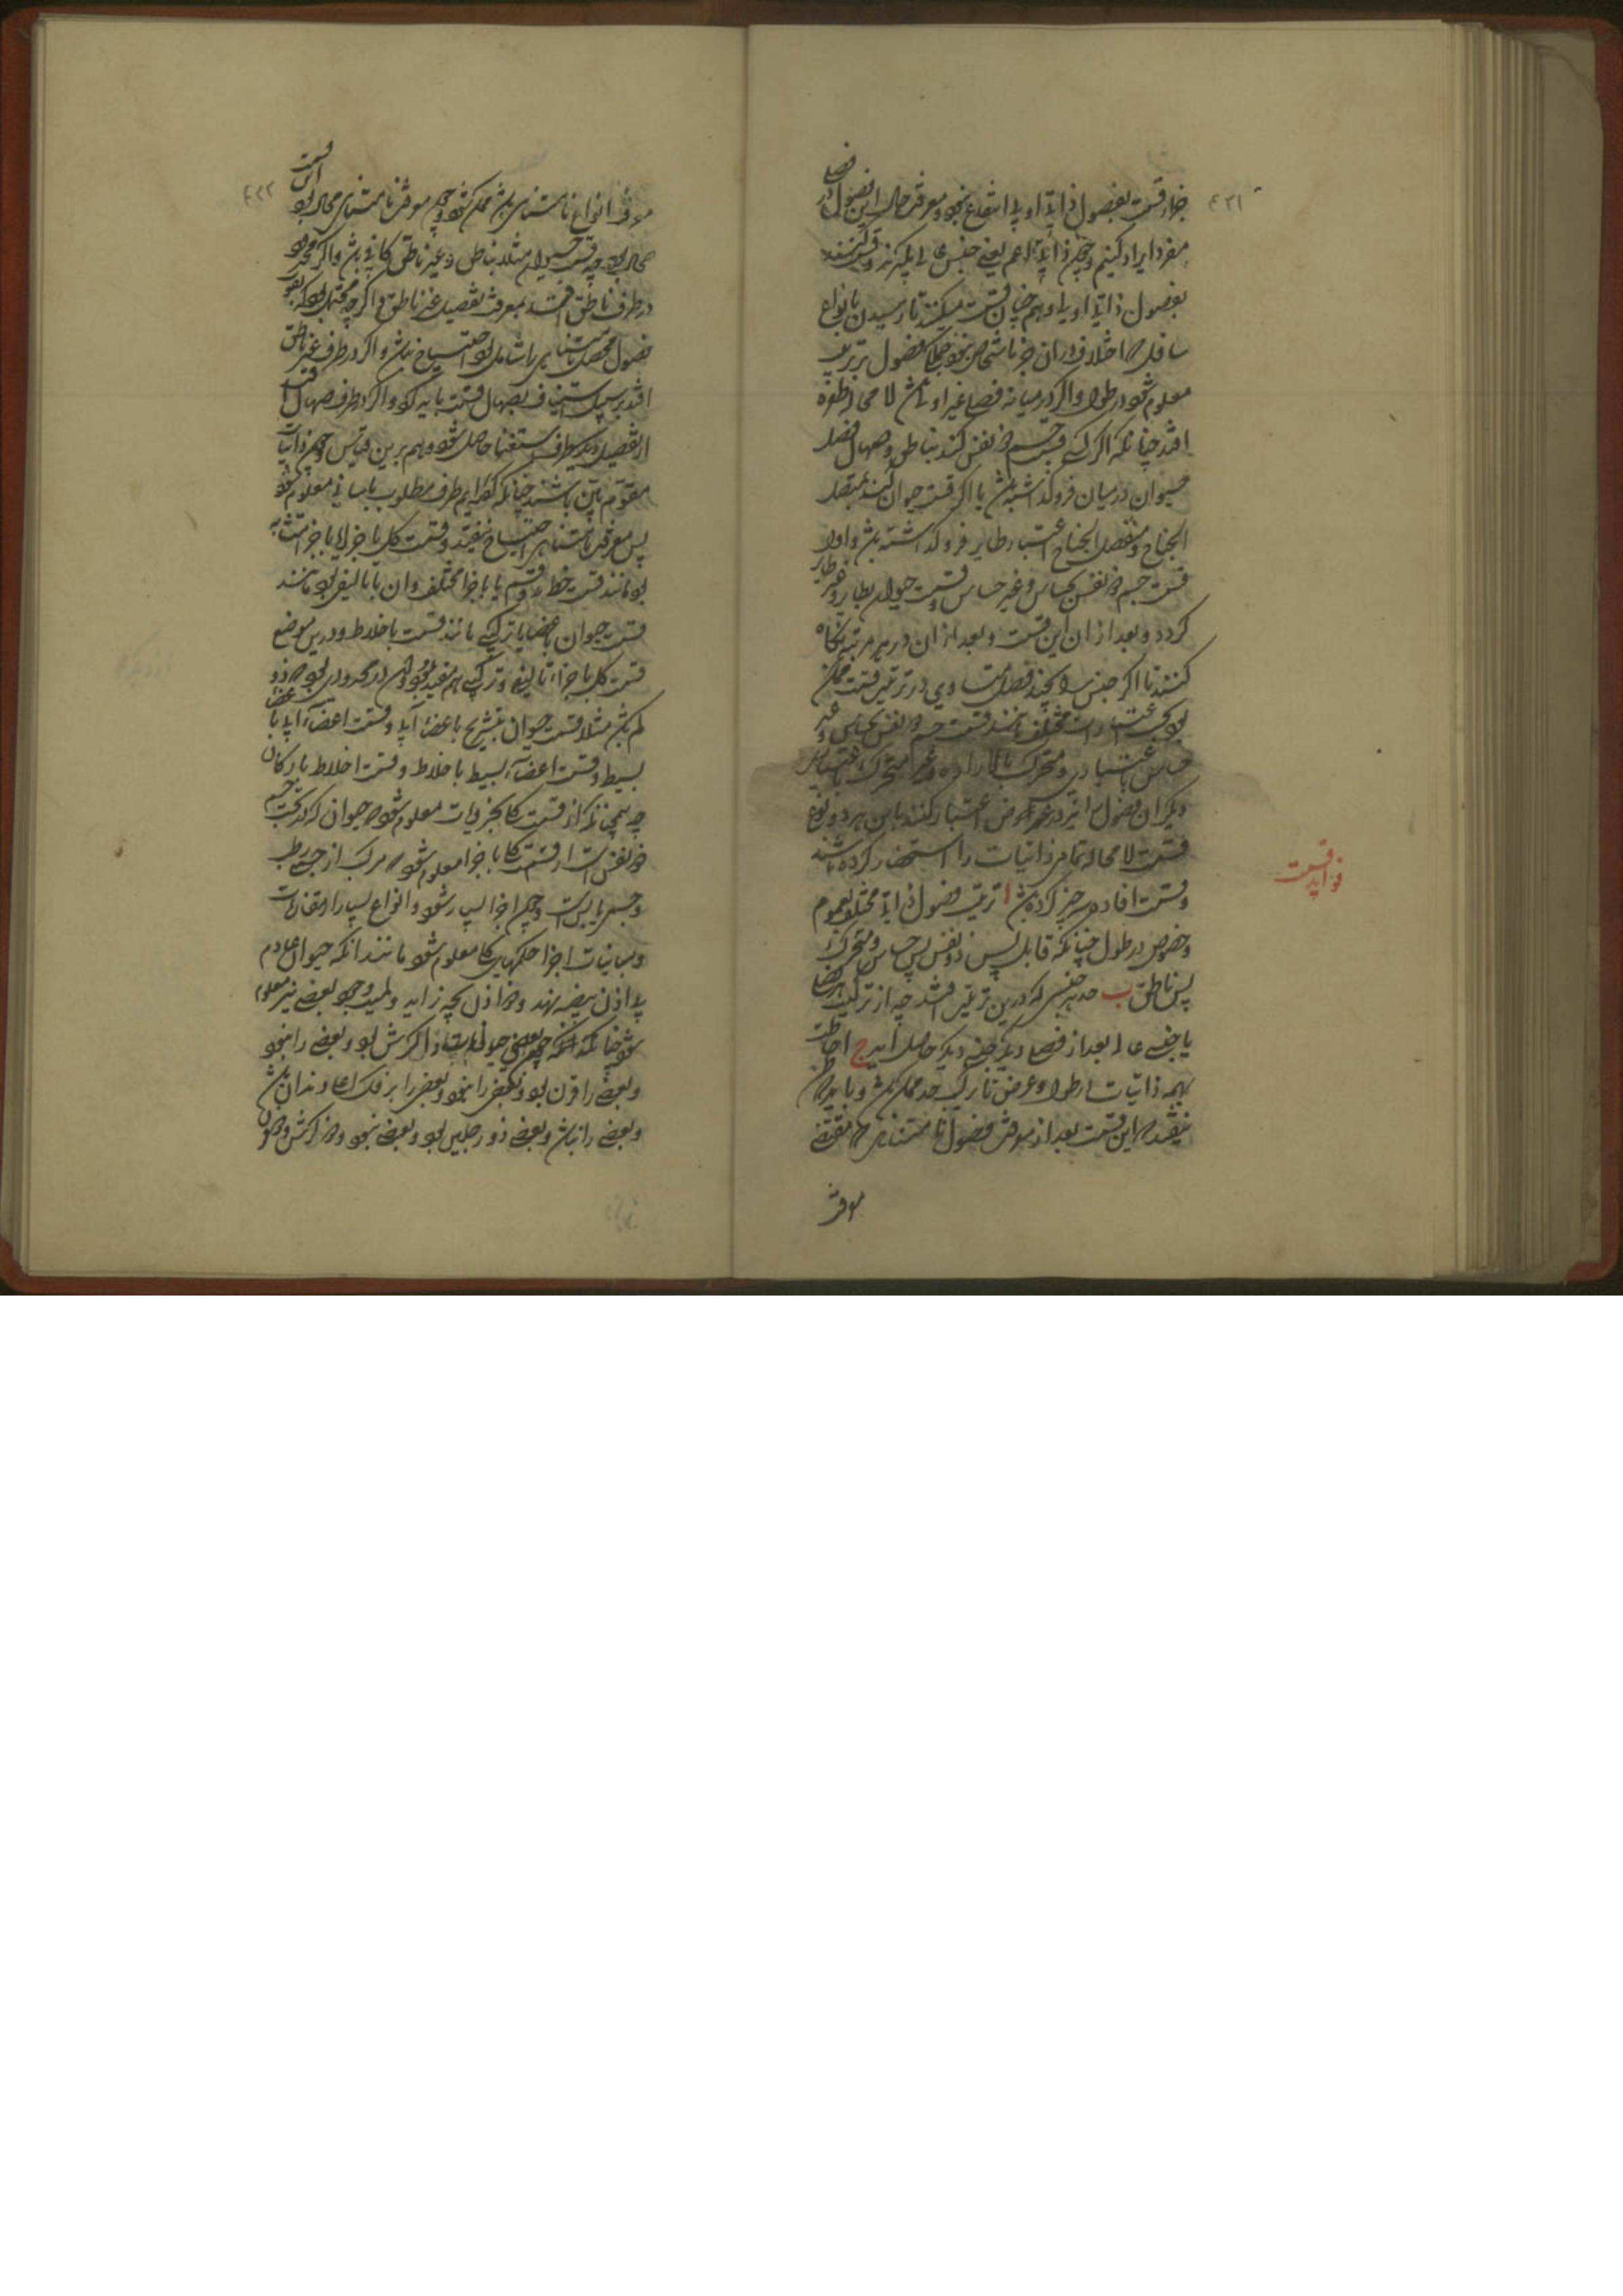 ٤٣١
جز از قسمت بفصول ذاتی اولی انتفاع نبود و معرفت حال این فصول در فصلی
مفرد ایراد کنیم و چون ذاتی اعم یعنی جنس عالی بگیرند و قسمت کنند
بفصول ذاتی اولی او را و هم چنان قسمت میکنند تا رسیدن بانواع
سافله که اختلاف دران جز باشخاص نبود جملگی فصول بترتیب
معلوم شود در طول و اگر در میانه فصلی غیر اولی باشد لا محاله طفره
افتد چنانکه اگر کسی قسمت جسم ذو نفس کند بناطق و صهال فصل
حیوان در میان فرو گذاشته باشد یا اگر قسمت حیوان کند بمتصل
الجناح و منفصل الجناح اعتبار طایر فرو گذاشته باشد و اولا
قسمت جسم ذو نفس بحساس و غیر حساس و قسمت حیوان بطایر و غیر طایر
کردد و بعد از ان این قسمت و بعد از ان در هر مرتبه نگاه
کنند تا اگر جنس را بچند فصل متساوی در ترتیب قسمت ممکن
بود بحسب اعتبارات مختلف مانند قسمت جسم ذو نفس بحساس و غیر
حساس باعتباری و متحرک بالاراده و غیر متحرک باعتباری
دیگر ان فصول را نیز در عرض اعتبار کنند باین هر دو نوع
قسمت لا محاله تمامی ذاتیات را استحضار کرده باشند
فواید قسمت
و قسمت افاده سه چیز کرده باشد ا ترتیب فصول ذاتی مختلف بعموم
و خصوص در طول چنانکه قابل پس ذو نفس پس حساس و متحرک
پس ناطق ب حد هر جنسی که درین ترتیب افتد چه از ترکیب هر فصلی
یا جنس عالی بعد از فصلی دیگر جنسی دیگر حاصل اید ج احاطت
بهمه ذاتیات در طول و عرض تا ترکیب حد ممکن باشد و باید که
نیفتد که این قسمت بعد از معرفت فصول نامتناهی که مقتضی
معرفت
٤٣٢
معرفت انواع نامتناهی باشد ممکن شود و چون معرفت نامتناهی محال بود این قسمت
محال بود چه قسمت حیوان مثلا بناطق و غیر ناطق کافی باشد و اگر محدود
در طرف ناطق افتد بمعرفت تفصیل غیر ناطق و اگر چه محتمل بود که بقوت
فصول محصل نامتناهی را شامل بود احتیاج نباشد و اگر در طرف غیر ناطق
افتد بر سبیل استیناف بصهال قسمت باید کرد و اگر در طرف صهال افتد
از تفصیل دیگر طرف استغنا حاصل شود و هم برین قیاس چون ذاتیات
مقوم باین باشند چنانکه کفته ایم طرف مطلوب باسانی معلوم شود
پس بمعرفت نامتناهی احتیاج نیفتد و قسمت کل باجزا یا باجزا متشابه
بود مانند قسمت خط بدو قسم یا باجزا مختلف و ان یا تالیفی بود مانند
قسمت حیوان باعضا یا ترکیبی مانند قسمت باخلاط و درین موضع
قسمت کل باجزاء تالیفی و ترکیبی هم مفید بود و ان در محدودی بود که ذو
کم باشد مثلا قسمت حیوان بتشریح باعضاء آلی و قسمت اعضاء آلی باعضاء
بسیط و قسمت اعضاء بسیط باخلاط و قسمت اخلاط بارکان
چه همچنانکه از قسمت کلی بجزویات معلوم شود که حیوان که در تحت جسم
ذو نفس است از قسمت کل باجزا معلوم شود که مرکب از جسمی رطب
و جسمی یابس است و چون اجزا بسیار شود و انواع بسیار را مقارنات
و مباینات اجزا حکمهای کلی معلوم شود مانند انکه حیوان عادم
یا اذن بیضه نهد و ذو اذن بچه زاید و لمیت وجود بعضی نیز معلوم
شود چنانکه انکه چون بعضی حیوانات ذا کرش بود و بعضی را نبود
و بعضی را قرن بود و بعضی را نبود و بعضی را بر فک اعلی دندان باشد
و بعضی را نباشد و بعضی ذو رجلین بود و بعضی نبود و ذو کرش و قرن